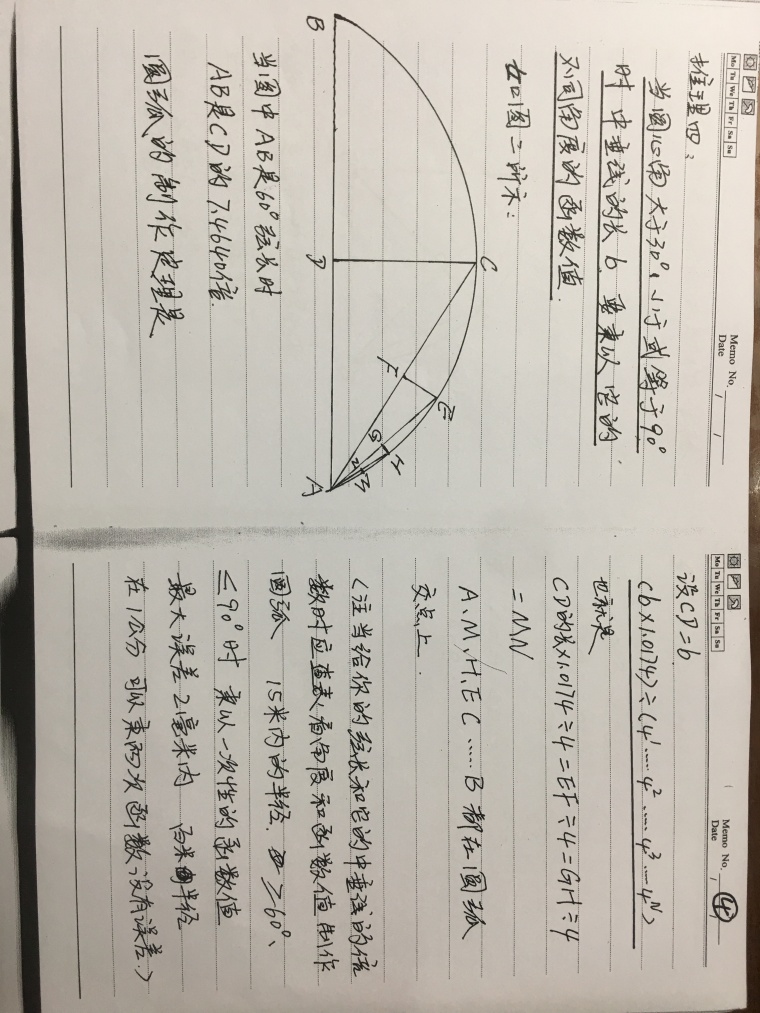 Mo Tu We Th Fr Sa Su
Memo No.
Date / /
推理四:
当圆心角大于30°、小于或等于90°
时 中垂线的长b 要乘以它的
不同角度的函数值.
如图二所示:
B
D
C
F
E
G
H
N
M
A
当圆中AB是60°弦长时
AB是CD的7.4640倍.
圆弧的制作定理是
Mo Tu We Th Fr Sa Su
Memo No. ④
Date / /
设CD=b
(b×1.0174)÷(4¹……4²……4³…4ᴺ)
也就是
CD的长×1.0174÷4=EF÷4=GH÷4
=MN
A、M、H、E C …… B 都在圆弧
交点上.
(注当给你的弦长和它的中垂线的倍
数时应查表,看角度和函数值制作
圆弧 15米内的半径. ≥60°、
≤90°时 乘以一次性的函数值
最大误差2毫米内 百米半径
在1公分 可以乘两次函数,没有误差.)